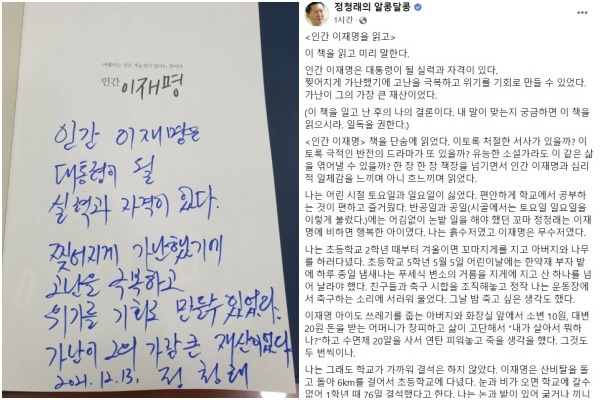 여명다운 것은 가능성이 있다는 것이다
인간 이재명
인간 이재명은
대통령이 될
실력과 자격이 있다.
찢어지게 가난했기에
고난을 극복하고
위기를 기회로 만들 수 있었다.
가난이 그의 가장 큰 재산이었다.
2021. 12. 13. 정청래
정청래의 알콩달콩
1시간
<인간 이재명을 읽고>
이 책을 읽고 미리 말한다.
인간 이재명은 대통령이 될 실력과 자격이 있다.
찢어지게 가난했기에 고난을 극복하고 위기를 기회로 만들 수 있었다.
가난이 그의 가장 큰 재산이었다.
(이 책을 일고 난 후의 나의 결론이다. 내 말이 맞는지 궁금하면 이 책을
읽으시라. 일독을 권한다.)
<인간 이재명> 책을 단숨에 읽었다. 이토록 처절한 서사가 있을까? 이
토록 극적인 반전의 드라마가 또 있을까? 유능한 소설가라도 이 같은 삶
을 엮어낼 수 있을까? 한 장 한 장 책장을 넘기면서 인간 이재명과 심리
적 일체감을 느끼며 아니 흐느끼며 읽었다.
나는 어린 시절 토요일과 일요일이 싫었다. 편안하게 학교에서 공부하
는 것이 편하고 즐거웠다. 반공일과 공일(시골에서는 토요일 일요일을
이렇게 불렀다.)에는 어김없이 논밭 일을 해야 했던 꼬마 정청래는 이재명
에 비하면 행복한 아이였다. 나는 흙수저였고 이재명은 무수저였다.
나는 초등학교 2학년 때부터 겨울이면 꼬마지게를 지고 아버지와 나무
를 하러다녔다. 초등학교 5학년 5월 5일 어린이날에는 한약재 부자 밭
에 하루 종일 냄새나는 푸세식 변소의 거름을 지게에 지고 산 하나를 넘
어 날라야 했다. 친구들과 축구 시합을 조직해놓고 정작 나는 운동장에
서 축구하는 소리에 서러워 울었다. 그날 밤 죽고 싶은 생각도 했다.
이재명 아이도 쓰레기를 줍는 아버지와 화장실 앞에서 소변 10원, 대변
20원 돈을 받는 어머니가 창피하고 삶이 고단해서 "내가 살아서 뭐하
나?"하고 수면제 20알을 사서 연탄 피워놓고 죽을 생각을 했다. 그것도
두 번씩이나.
나는 그래도 학교가 가까워 결석은 하지 않았다. 이재명은 산비탈을 돌
고 돌아 6km를 걸어서 초등학교에 다녔다. 눈과 비가 오면 학교에 갈수
없어 1학년 때 76일 결석했다고 한다. 나는 논과 밭이 있어 굶거나 끼니